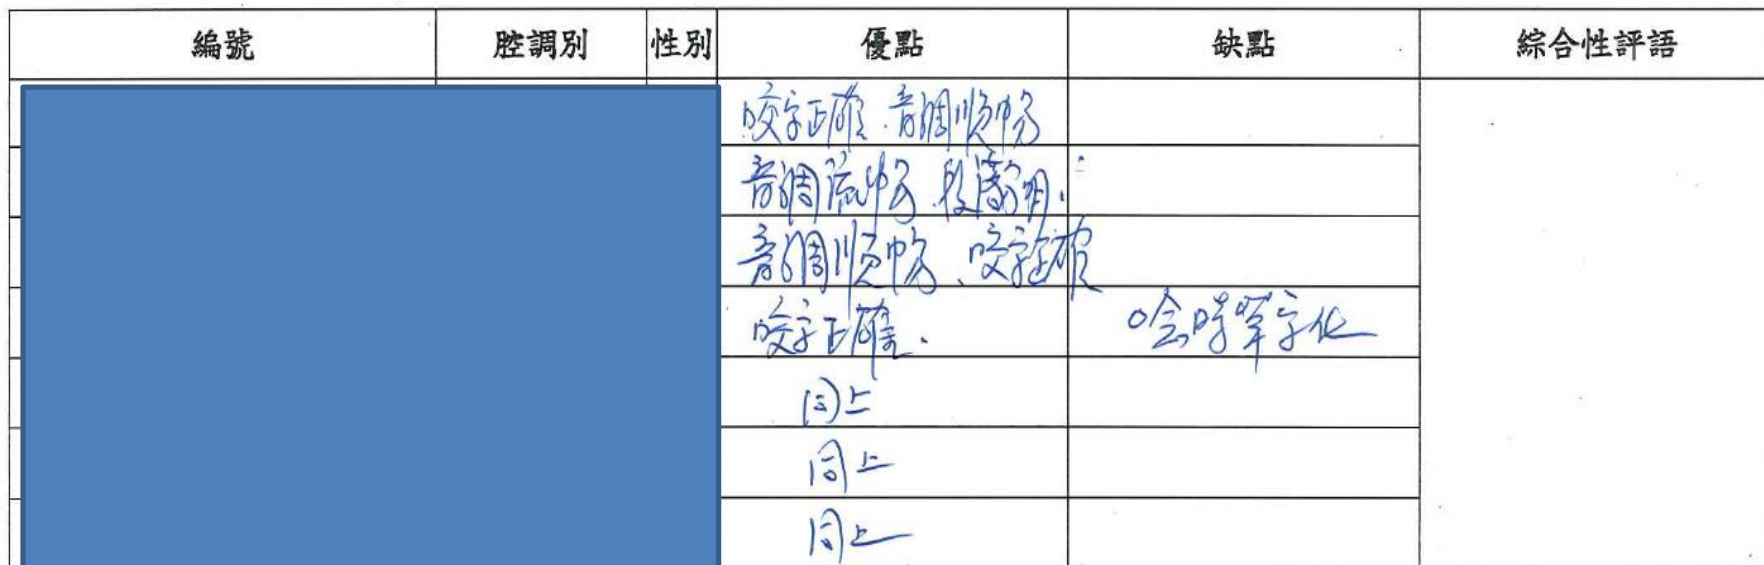 編號 腔調別 性別 優點 缺點 綜合性評語
咬字正確.音調順暢
音調流暢.段落分明.
音調順暢、咬字正確
咬字正確. 吟時單字化
同上
同上
同上